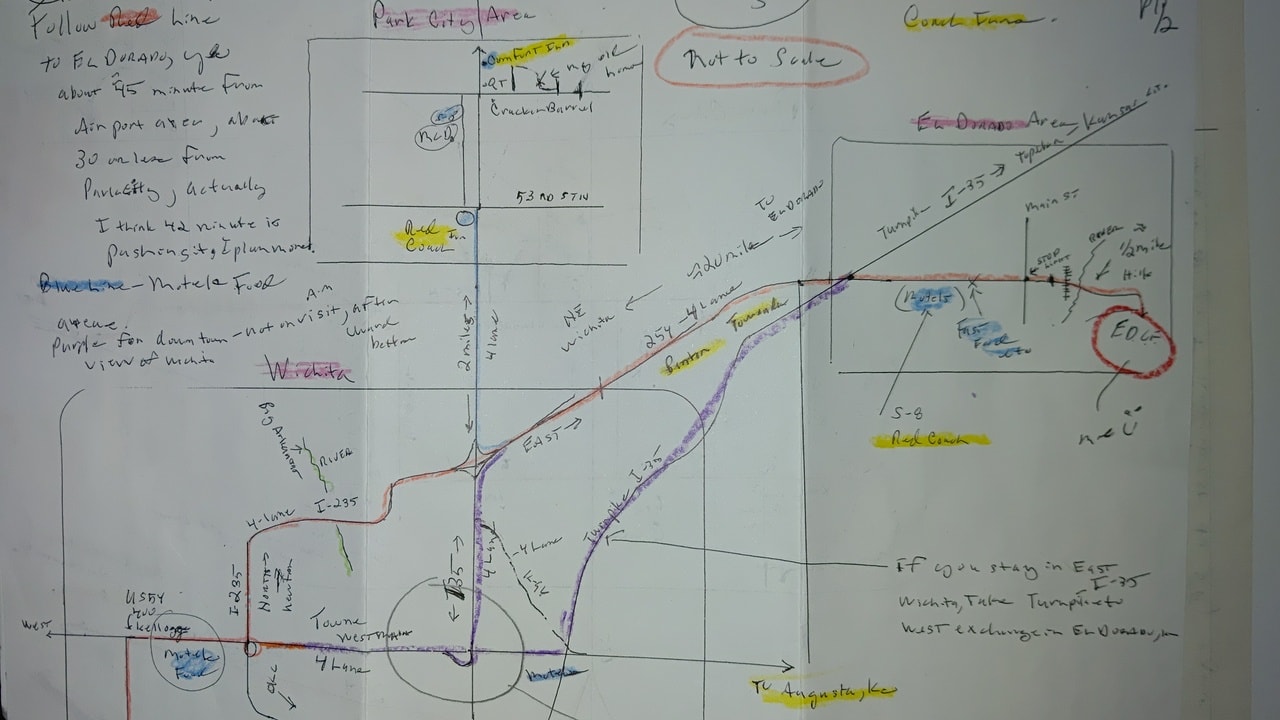 Follow Red Line
to El Dorado,
about 45 minute from
Airport area, about
30 or less from
Park City, actually
I think 42 minute is
pushing it, I plan more.
Blue Line - Motels Food
areas.
Purple for downtown - not on visit, after
view of wichita
A.M
Park City Area
Comfort Inn
QT
Cracker Barrel
McD
53 RD ST N
Red
Coach Inn
Not to Scale
Coach Inns.
El Dorado Area, Kansas
Turnpike I-35 → Topeka
TO
EL DORADO
← 20 mile →
NE
Wichita
254 - 4 Lane
Benton
Towanda
EAST →
2 miles
4 lane
Main ST
STOP
LIGHT
RIVER
1/2 mile
(Motels)
Fast
Food
etc
EDCF
S-8
Red Coach
Wichita
Big Arkansas
RIVER
4-lane I-235
I-235
North →
Newton
US54
400
Kellogg
WEST
Motels
Food
OKC
Towne
West
4 Lane
I-35
4 Lane
4 Lane
Turnpike I-35
Motels
TO Augusta, Ks
If you stay in East
Wichita, Take Turnpike I-35 to
West exchange in El Dorado,